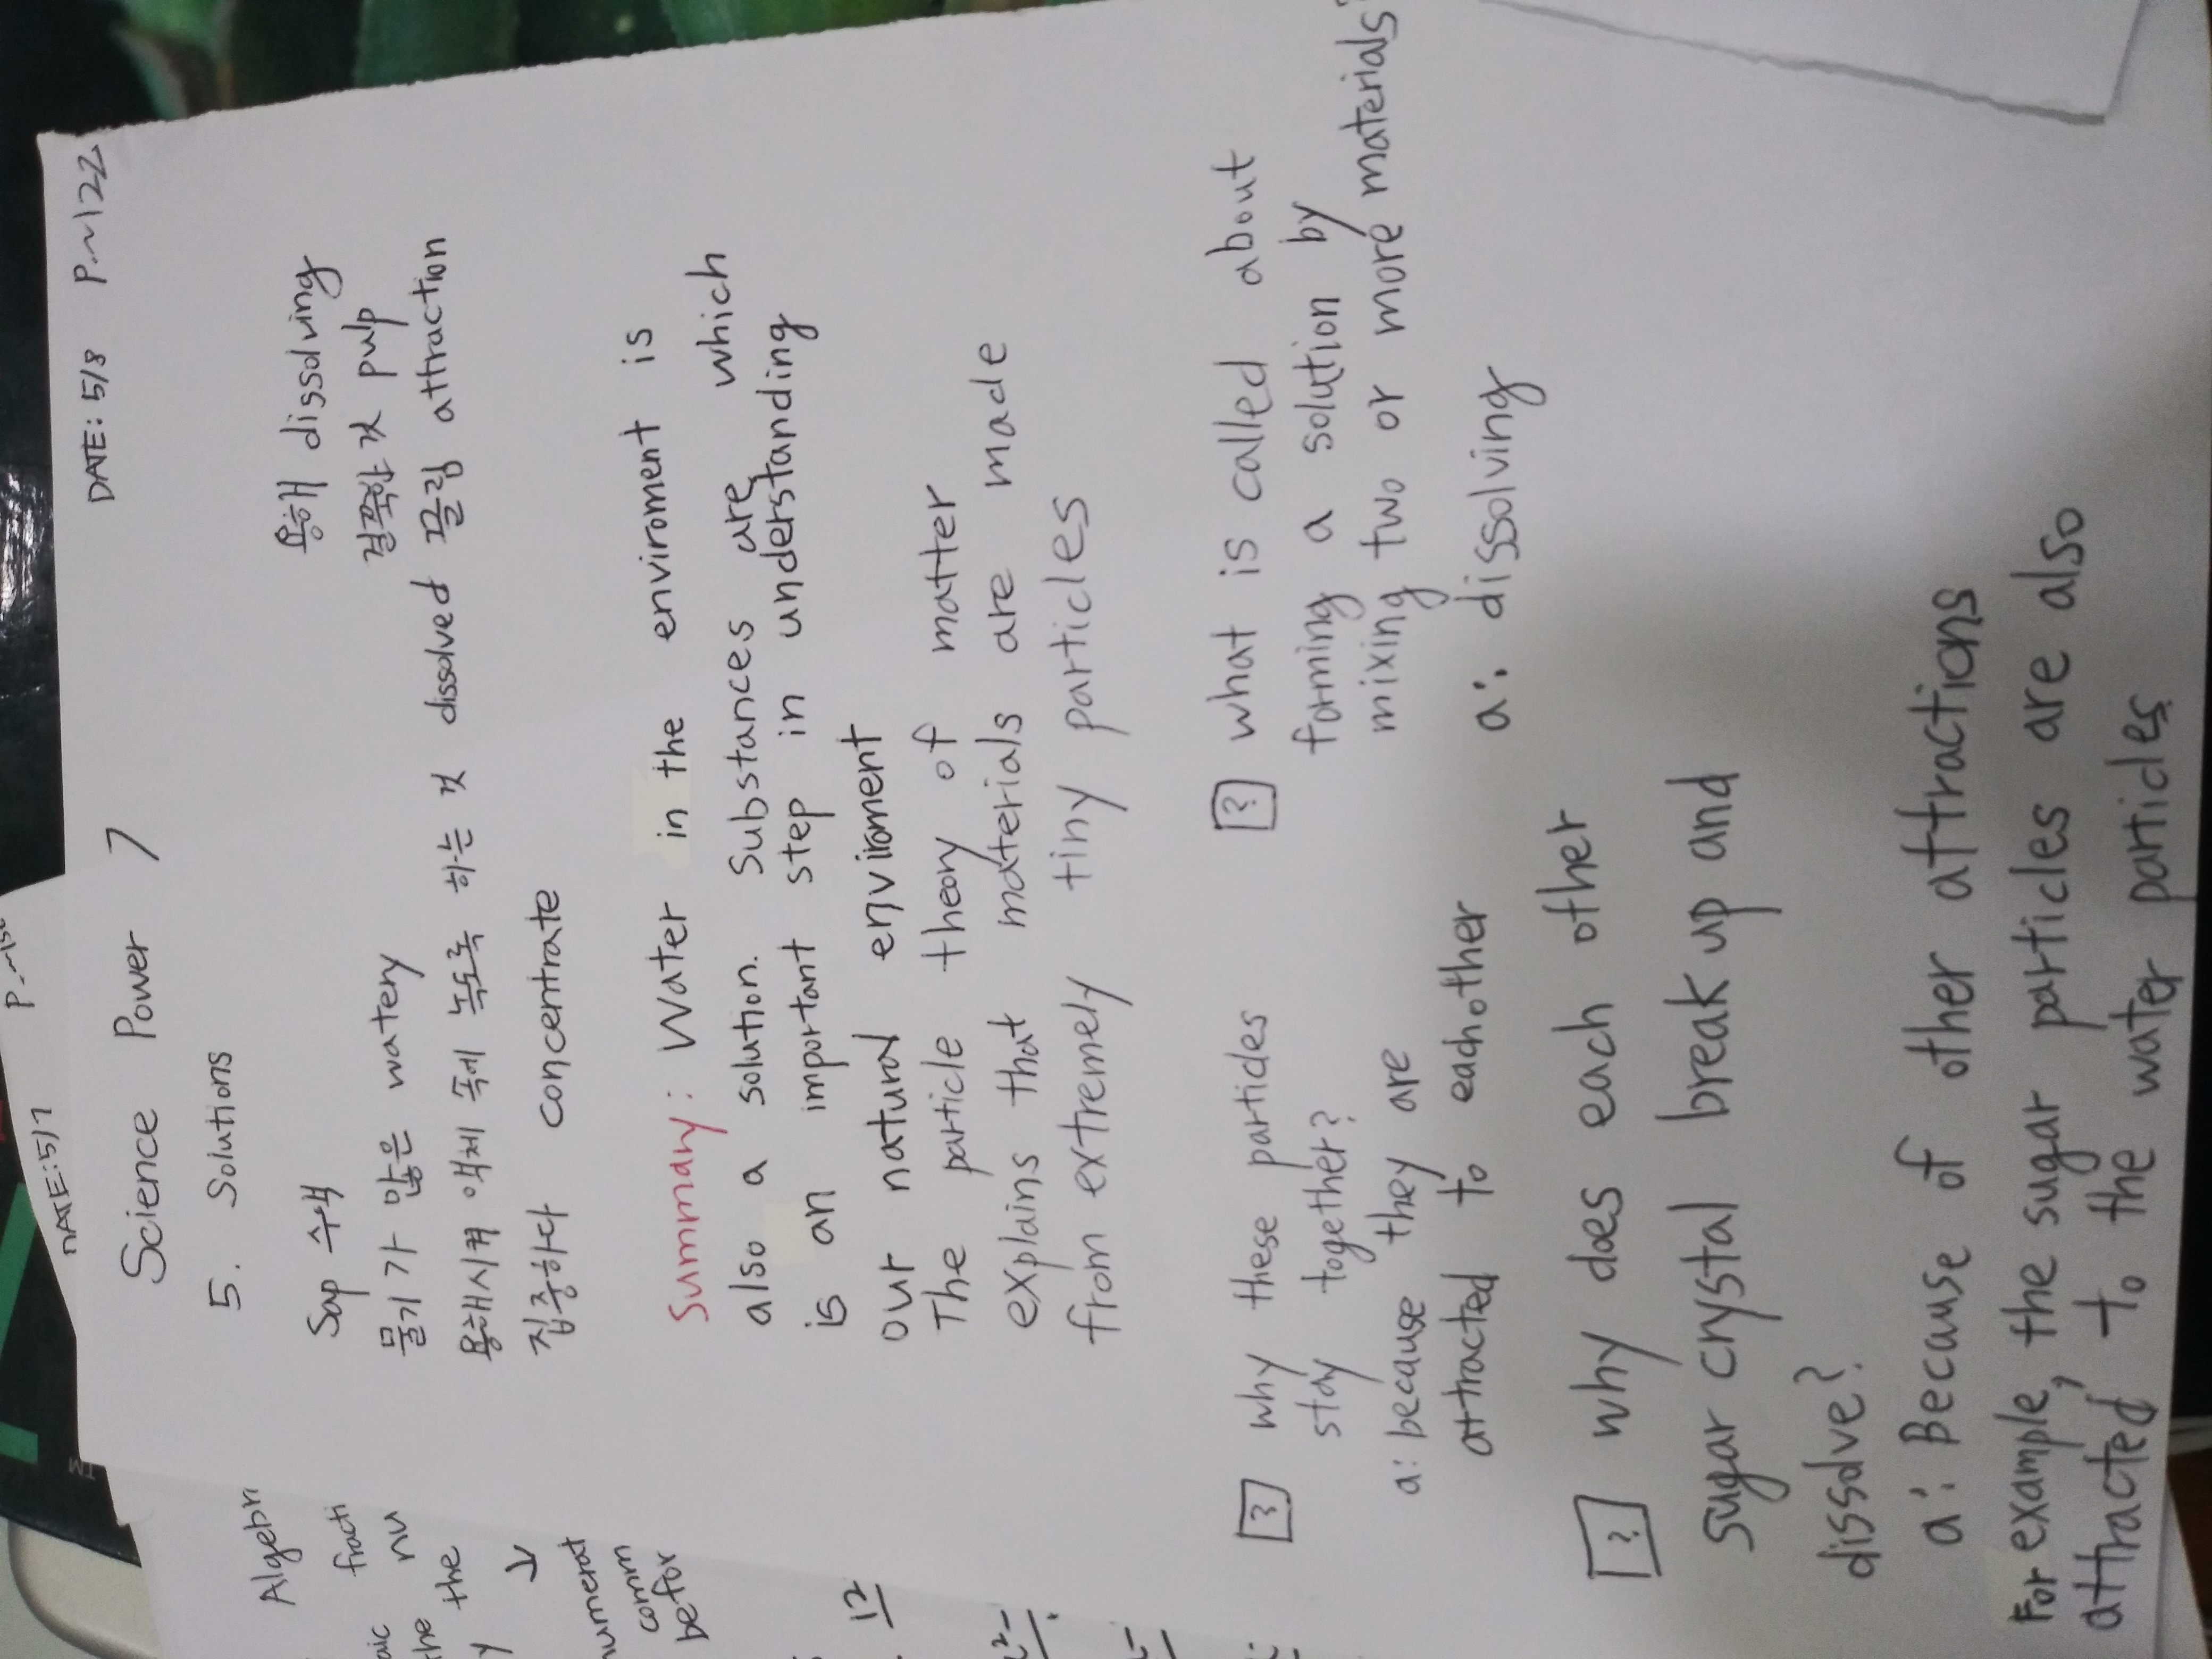 DATE: 5/8 P~122
Science Power 7
5. Solutions
Sap 수액
물기가 많은 watery
용해시켜 액체 속에 녹도록 하는 것 dissolved
집중하다 concentrate
용해 dissolving
걸쭉한 것 pulp
끌림 attraction
Summary: Water in the enviroment is
also a solution. Substances are which
is an important step in understanding
our natural enviroment
The particle theory of matter
explains that materials are made
from extremely tiny particles
? why these particles
stay together?
a: because they are
attracted to each other
? what is called about
forming a solution by
mixing two or more materials?
a: dissolving
? why does each other
sugar crystal break up and
dissolve?
a: Because of other attractions
For example, the sugar particles are also
attracted to the water particles
DATE: 5/7
Algebr
fracti
nu
the
the
↓
numerat
comm
befor
12
TM